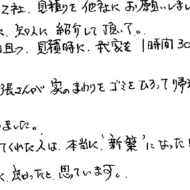 2社、見積りを他社にお願いしまし
に、知人に紹介して頂いて。
回っ、見積時に、我家を1時間30
張さんが家のまわりをゴミをひろって帰
ました。
てくれた人は、本当に"新築"になった!
く、良かったと思っています。